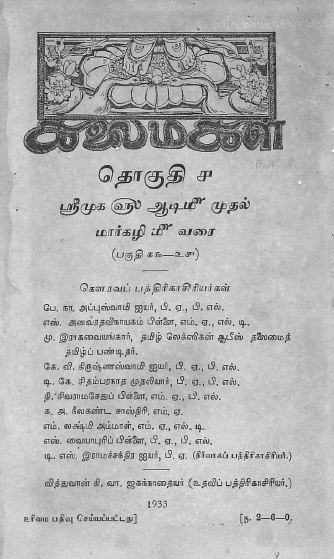 கலைமகள்
தொகுதி ச
ஸ்ரீமுக ௵ ஆடி௴ முதல்
மார்கழி ௴ வரை
(பகுதி ௧௯—௨௪)
கௌரவப் பத்திரிகாசிரியர்கள்
பெ. நா. அப்புஸ்வாமி ஐயர், பி. ஏ., பி. எல்.
எஸ். அனவரதவிநாயகம் பிள்ளை, எம். ஏ., எல். டி.
மு. இராகவையங்கார், தமிழ் லெக்ஸிகன் ஆபீஸ் தலைமைத்
தமிழ்ப் பண்டிதர்.
கே. வி. கிருஷ்ணஸ்வாமி ஐயர், பி. ஏ., பி. எல்.
டி. கே. சிதம்பரநாத முதலியார், பி. ஏ., பி. எல்.
தி. சிவராமசேதுப் பிள்ளை, எம். ஏ., பி. எல்.
க. அ. நீலகண்ட சாஸ்திரி, எம். ஏ.
எம். லக்ஷ்மி அம்மாள், எம். ஏ., எல். டி.
எஸ். வையாபுரிப் பிள்ளை, பி. ஏ., பி. எல்.
டி. எஸ். இராமச்சந்திர ஐயர், பி. ஏ. (நிர்வாகப் பத்திரிகாசிரியர்.)
வித்துவான் கி. வா. ஜகந்நாதையர் (உதவிப் பத்திரிகாசிரியர்.)
1933
உரிமை பதிவு செய்யப்பட்டது] [ரூ. 2—6—0.